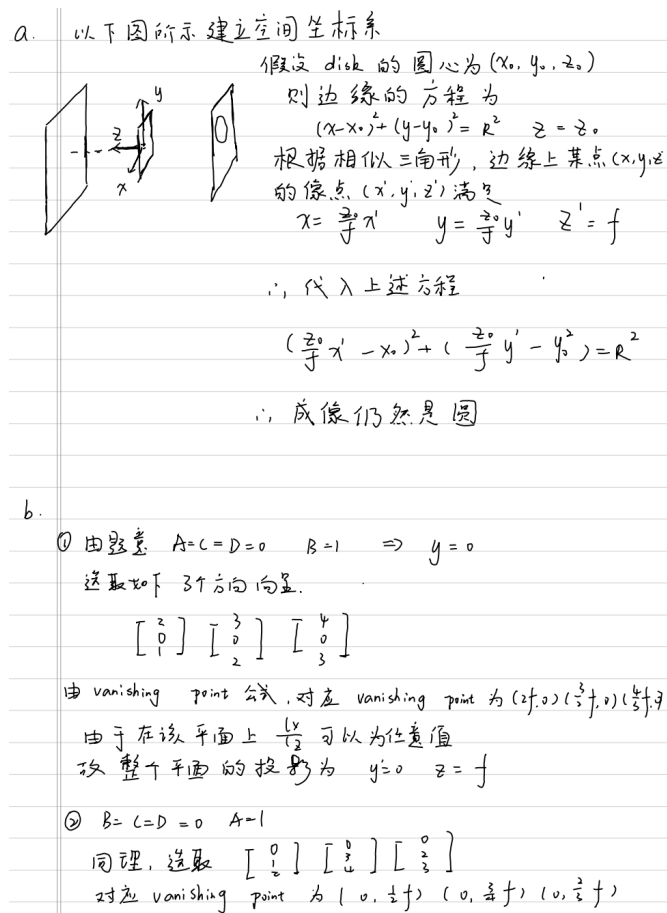 a. 以下图所示建立空间坐标系
假设 disk 的圆心为 (x₀, y₀, z₀)
则边缘的方程为
(x-x₀)²+(y-y₀)²= R² z = z₀
根据相似三角形, 边缘上某点(x,y,z
的像点 (x',y',z') 满足
x = z₀/f x' y = z₀/f y' z' = f
∴ 代入上述方程
(z₀/f x' - x₀)² + ( z₀/f y' - y₀²) = R²
∴ 成像仍然是圆
y
z
x
b.
① 由题意 A=C=D=0 B=1 ⇒ y = 0
选取如下 3个方向向量.
[2 0 1] [3 0 2] [4 0 3]
由 vanishing point 公式, 对应 vanishing point 为 (2f,0) (3/2 f,0) (4/3 f,
由于在该平面上 lx/lz 可以为任意值
故 整个平面的投影为 y'=0 z = f
② B=C=D=0 A=1
同理, 选取 [0 1 2] [0 3 4] [0 2 3]
对应 vanishing point 为 (0, 1/2 f) (0, 3/4 f) (0, 2/3 f)